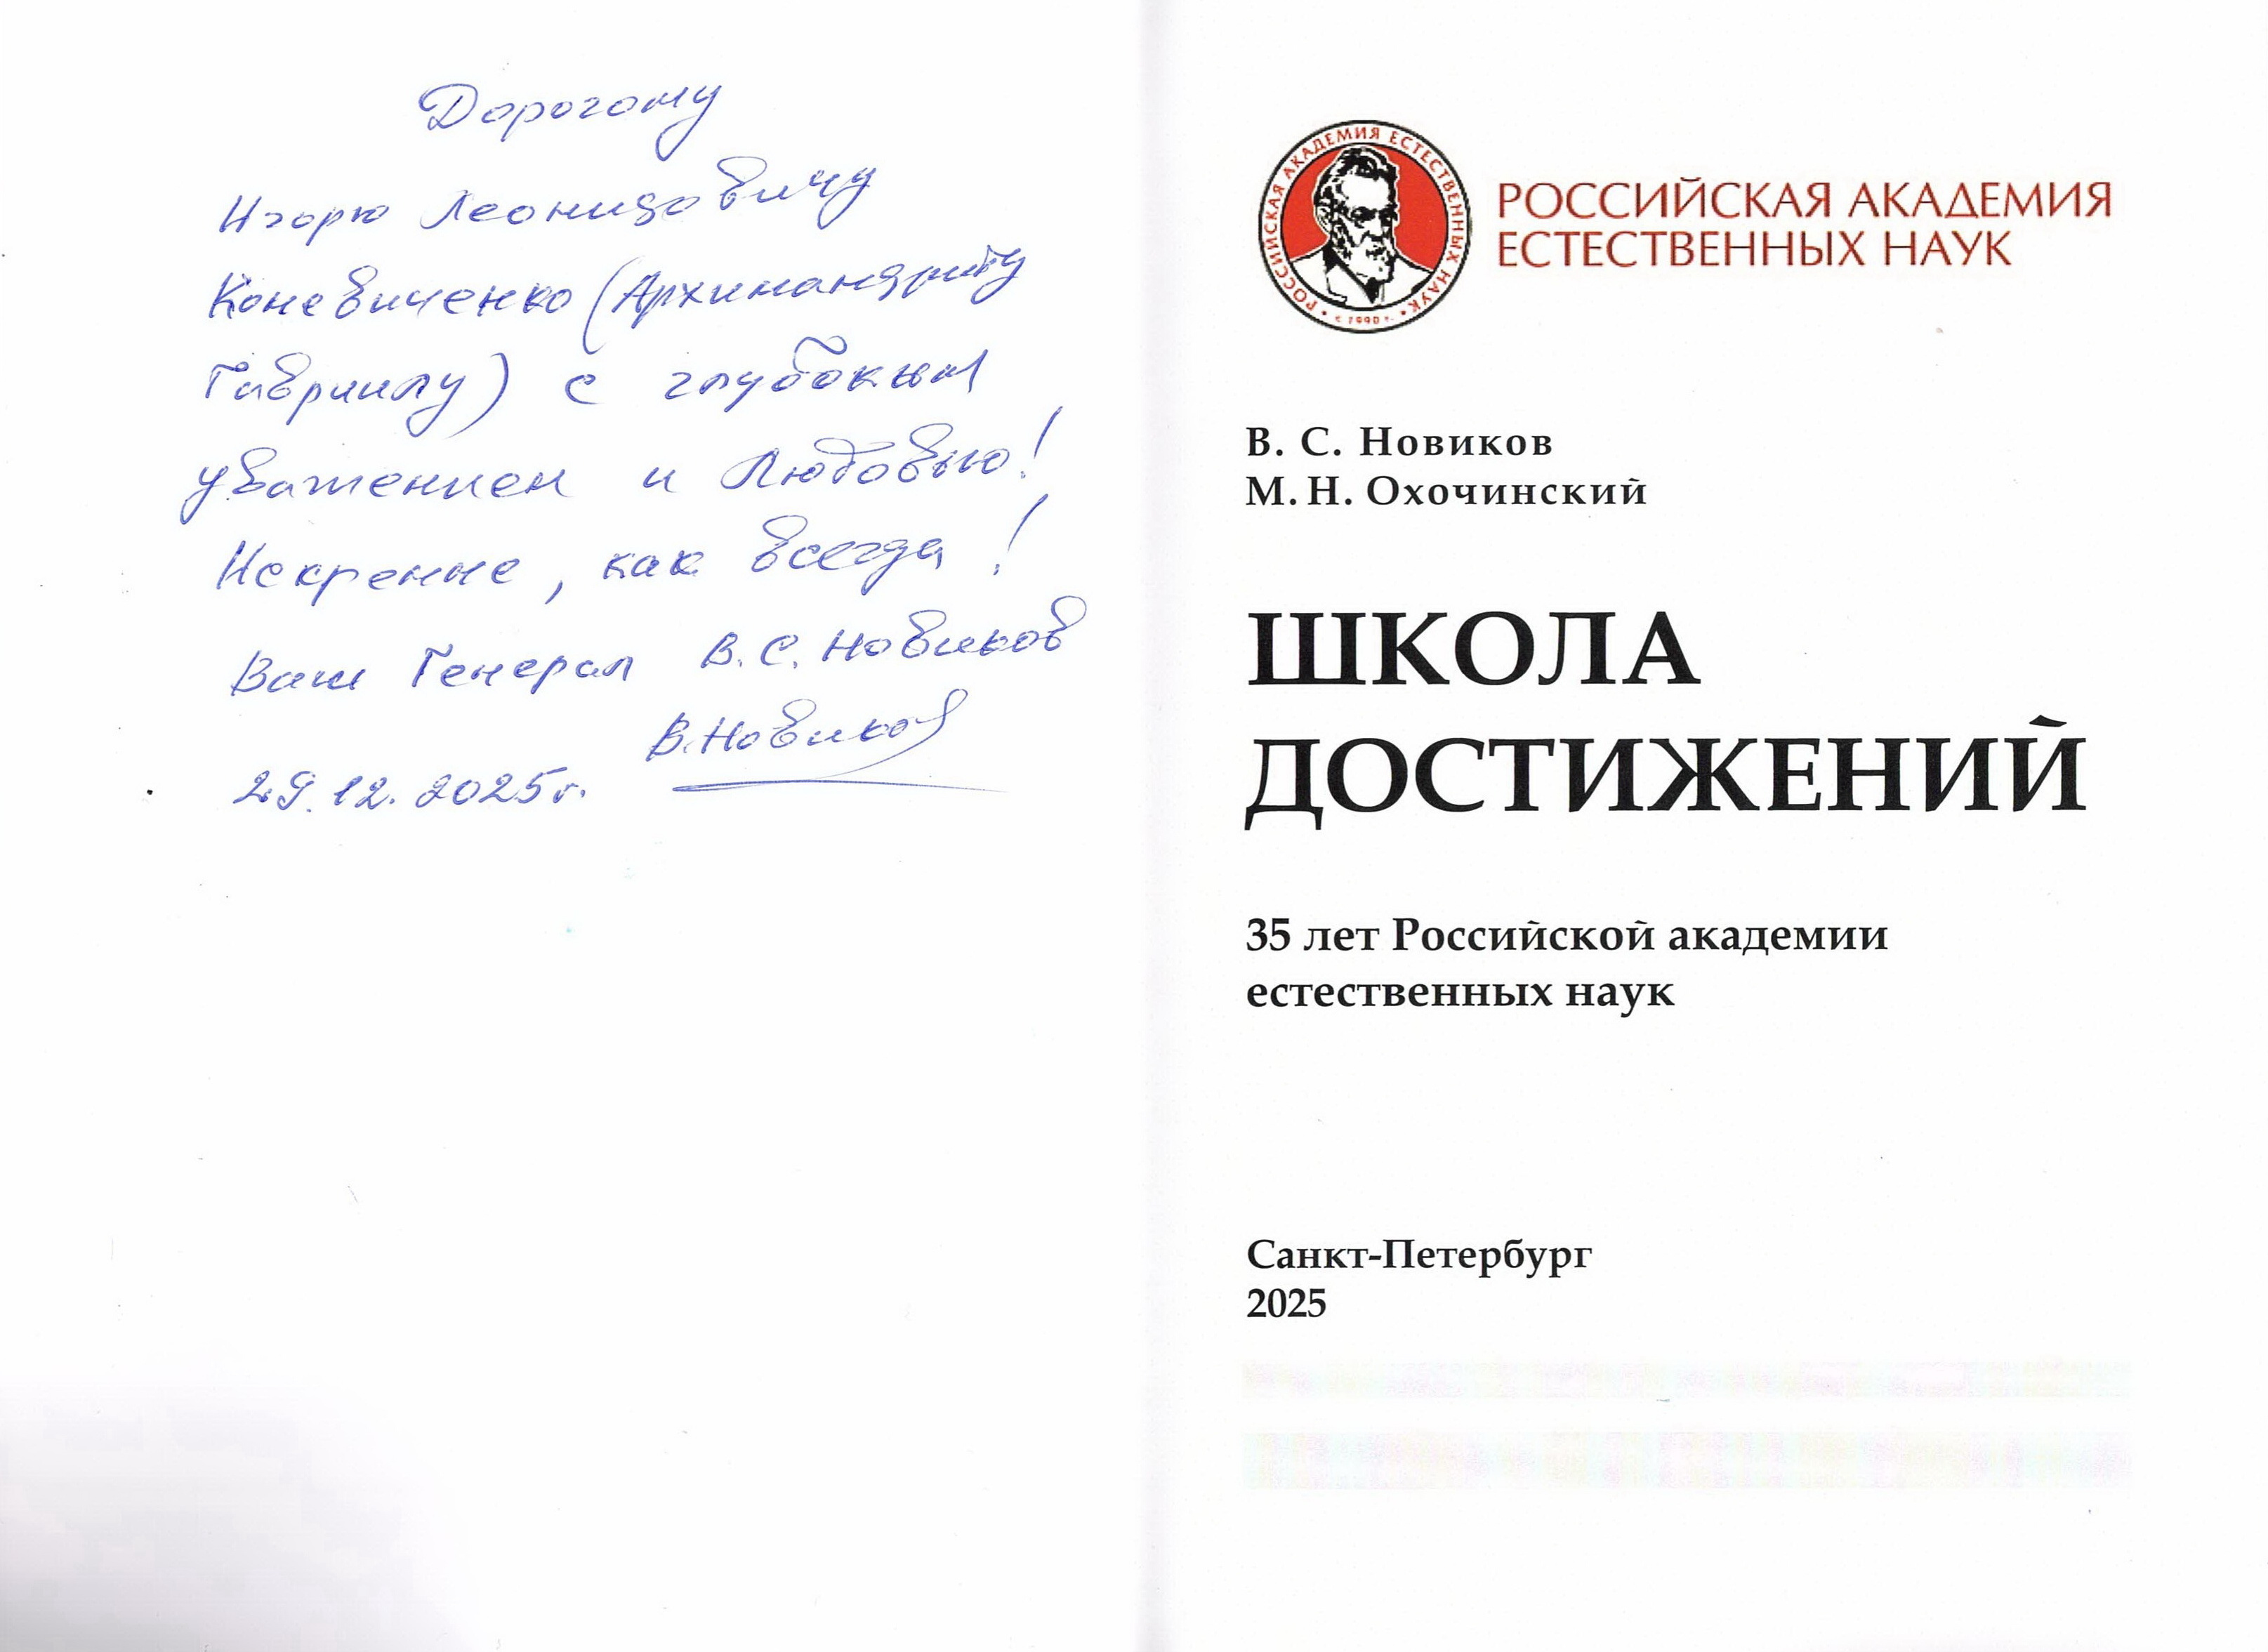 Дорогому
Игорю Леонидовичу
Коневиченко (Архимандриту
Гавриилу) с глубоким
уважением и Любовью!
Искренне, как всегда!
Ваш Генерал В.С. Новиков
В.Новиков
29.12.2025г.
РОССИЙСКАЯ АКАДЕМИЯ ЕСТЕСТВЕННЫХ НАУК
• с 1990 г. •
РОССИЙСКАЯ АКАДЕМИЯ
ЕСТЕСТВЕННЫХ НАУК
В. С. Новиков
М. Н. Охочинский
ШКОЛА
ДОСТИЖЕНИЙ
35 лет Российской академии
естественных наук
Санкт-Петербург
2025